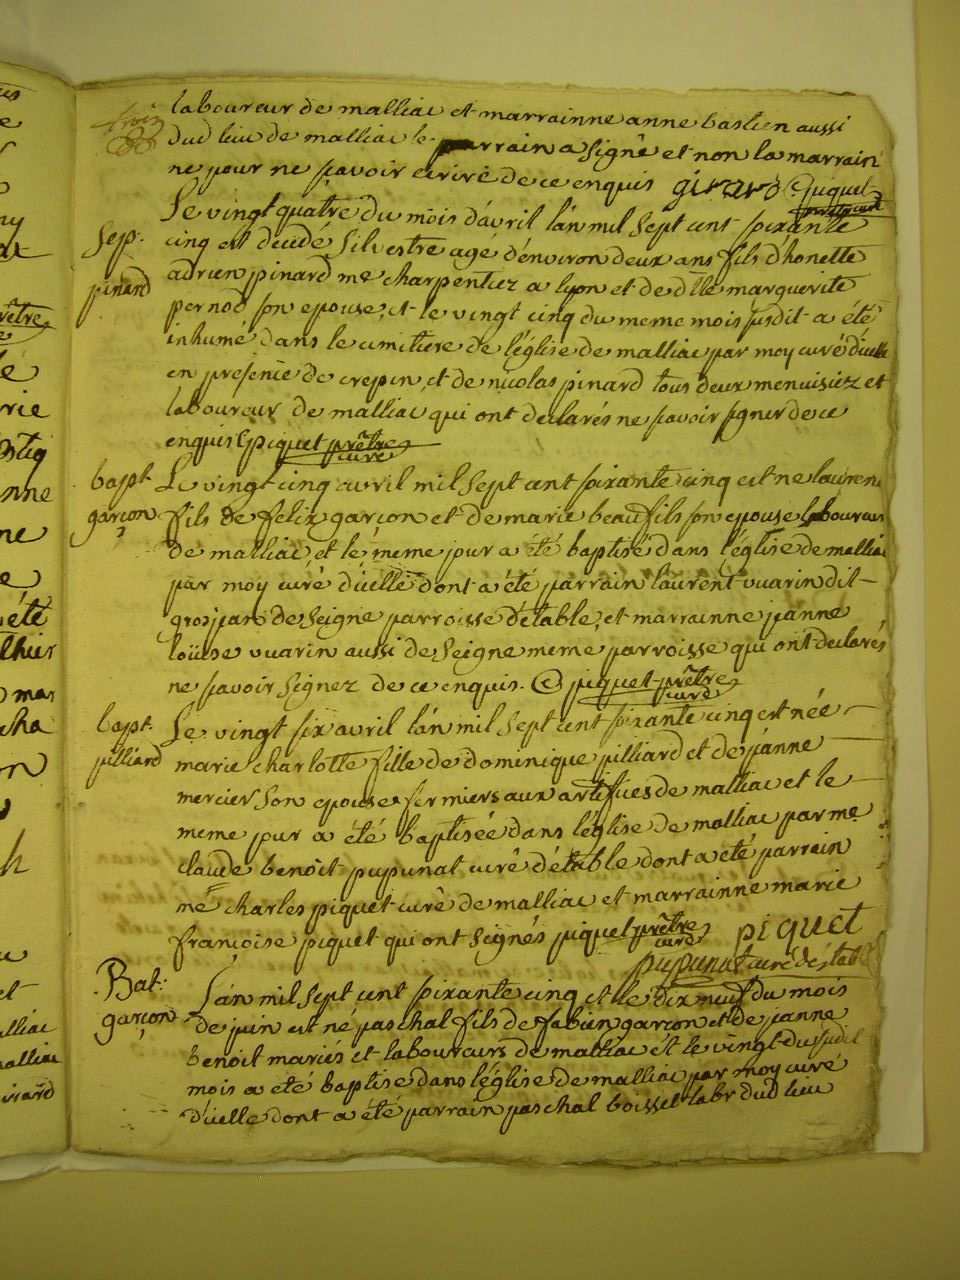 laboureur de malliac et marrainne anne bastien aussi
dud lieu de malliac le parrain a signé et non la marrain
ne pour ne sçavoir ecrire de ce enquis girard C piquet
prêtre curé
Sep.
pinard
Le vingt quatre du mois d'avril l'an mil sept cent soixante
cinq est decedé Silvestre age d'environ deux ans fils d'honette
adrien pinard me charpentiez a lyon et de dlle marguerite
pernod son epouse, et le vingt cinq du meme mois susdit a été
inhumé dans le cimitiere de l'église de malliac par moy curé d'icelle
en presence de crepin et de nicolas pinard tous deux menuisiez et
laboureur de malliac qui ont declarés ne sçavoir signer de ce
enquis C piquet prêtre
curé
bapt.
garçon
Le vingt cinq avril mil sept cent soixante cinq est ne lauren
fils de felix garçon et de marie beaufils son epouse laboureurs
de malliac, et le meme jour a été baptisé dans l'église de malliac
par moy curé d'icelle dont a été parrain laurent vuarin dit
grosjean de Seigne parroisse d'etable, et marrainne jeanne
loüise vuarin aussi de Seigne meme parroisse qui ont declarés
ne sçavoir signez de ce enquis. C piquet prêtre
curé
bapt.
julliard
Le vingt six avril l'an mil sept cent soixante cinq est née
marie charlotte fille de dominique julliard et de jeanne
mercier son epouse fermiers aux artifices de malliac et le
meme jour a été baptisée dans l'église de malliac par me
claude benoit pupunat curé d'étable dont a été parrain
me charles piquet curé de malliac et marrainne marie
francoise piquet qui ont signés piquet prêtre piquet
curé
pupunat curé d'étable
Bat.
garçon
L'an mil sept cent soixante cinq et le dix neuf du mois
de juin est né paschal fils de fabien garçon et de jeanne
benoit mariés et laboureurs de malliac et le vingt du susdit
mois a eté baptise dans l'église de malliac par moy curé
d'icelle dont a été parrain paschal boisset labr dud lieu